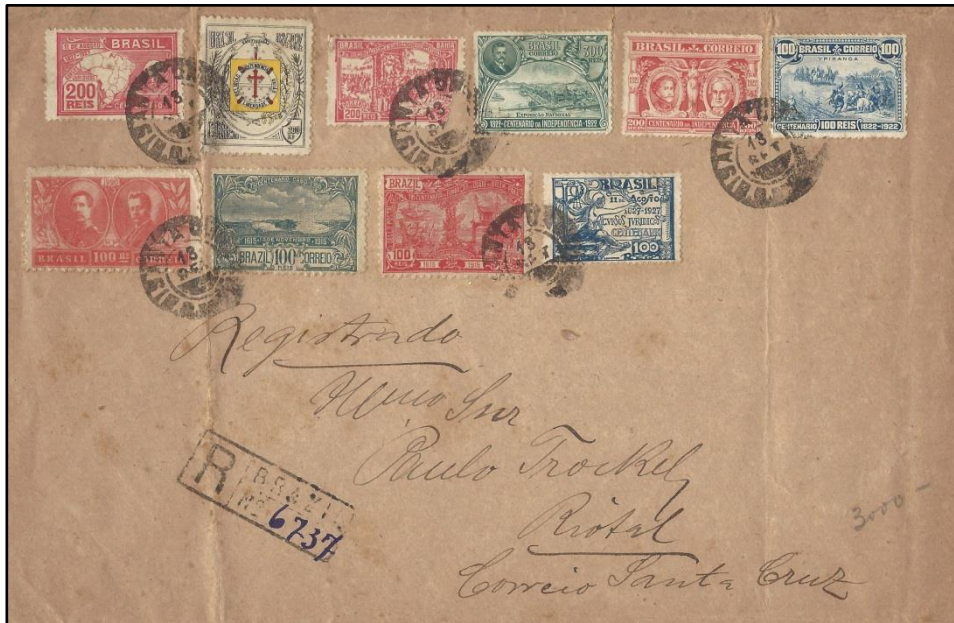 11 DE AGOSTO
BRASIL
200
REIS
BRASIL
200
BRASIL
BAHIA
200 REIS
BRASIL
CORREIO
300
REIS
EXPOSIÇÃO NACIONAL
1822-CENTENARIO DA INDEPENDENCIA-1922
BRASIL CORREIO
200 CENTENARIO DA INDEPENDENCIA 200
100 BRASIL CORREIO 100
YPIRANGA
CENTENARIO 100 REIS 1822-1922
1920
BRASIL 100 RS
BRAZIL 100 CORREIO
REIS
BRAZIL
100
1616 1916
BRASIL
11 DE AGOSTO
1827-1927
CURSOS JURIDICOS
CENTENARIO
100
SANTA CRUZ
18
SET
Registrado
Paulo Trockel
Riotal
Correio Santa Cruz
R
BRAZIL
Nº 6737
3000-